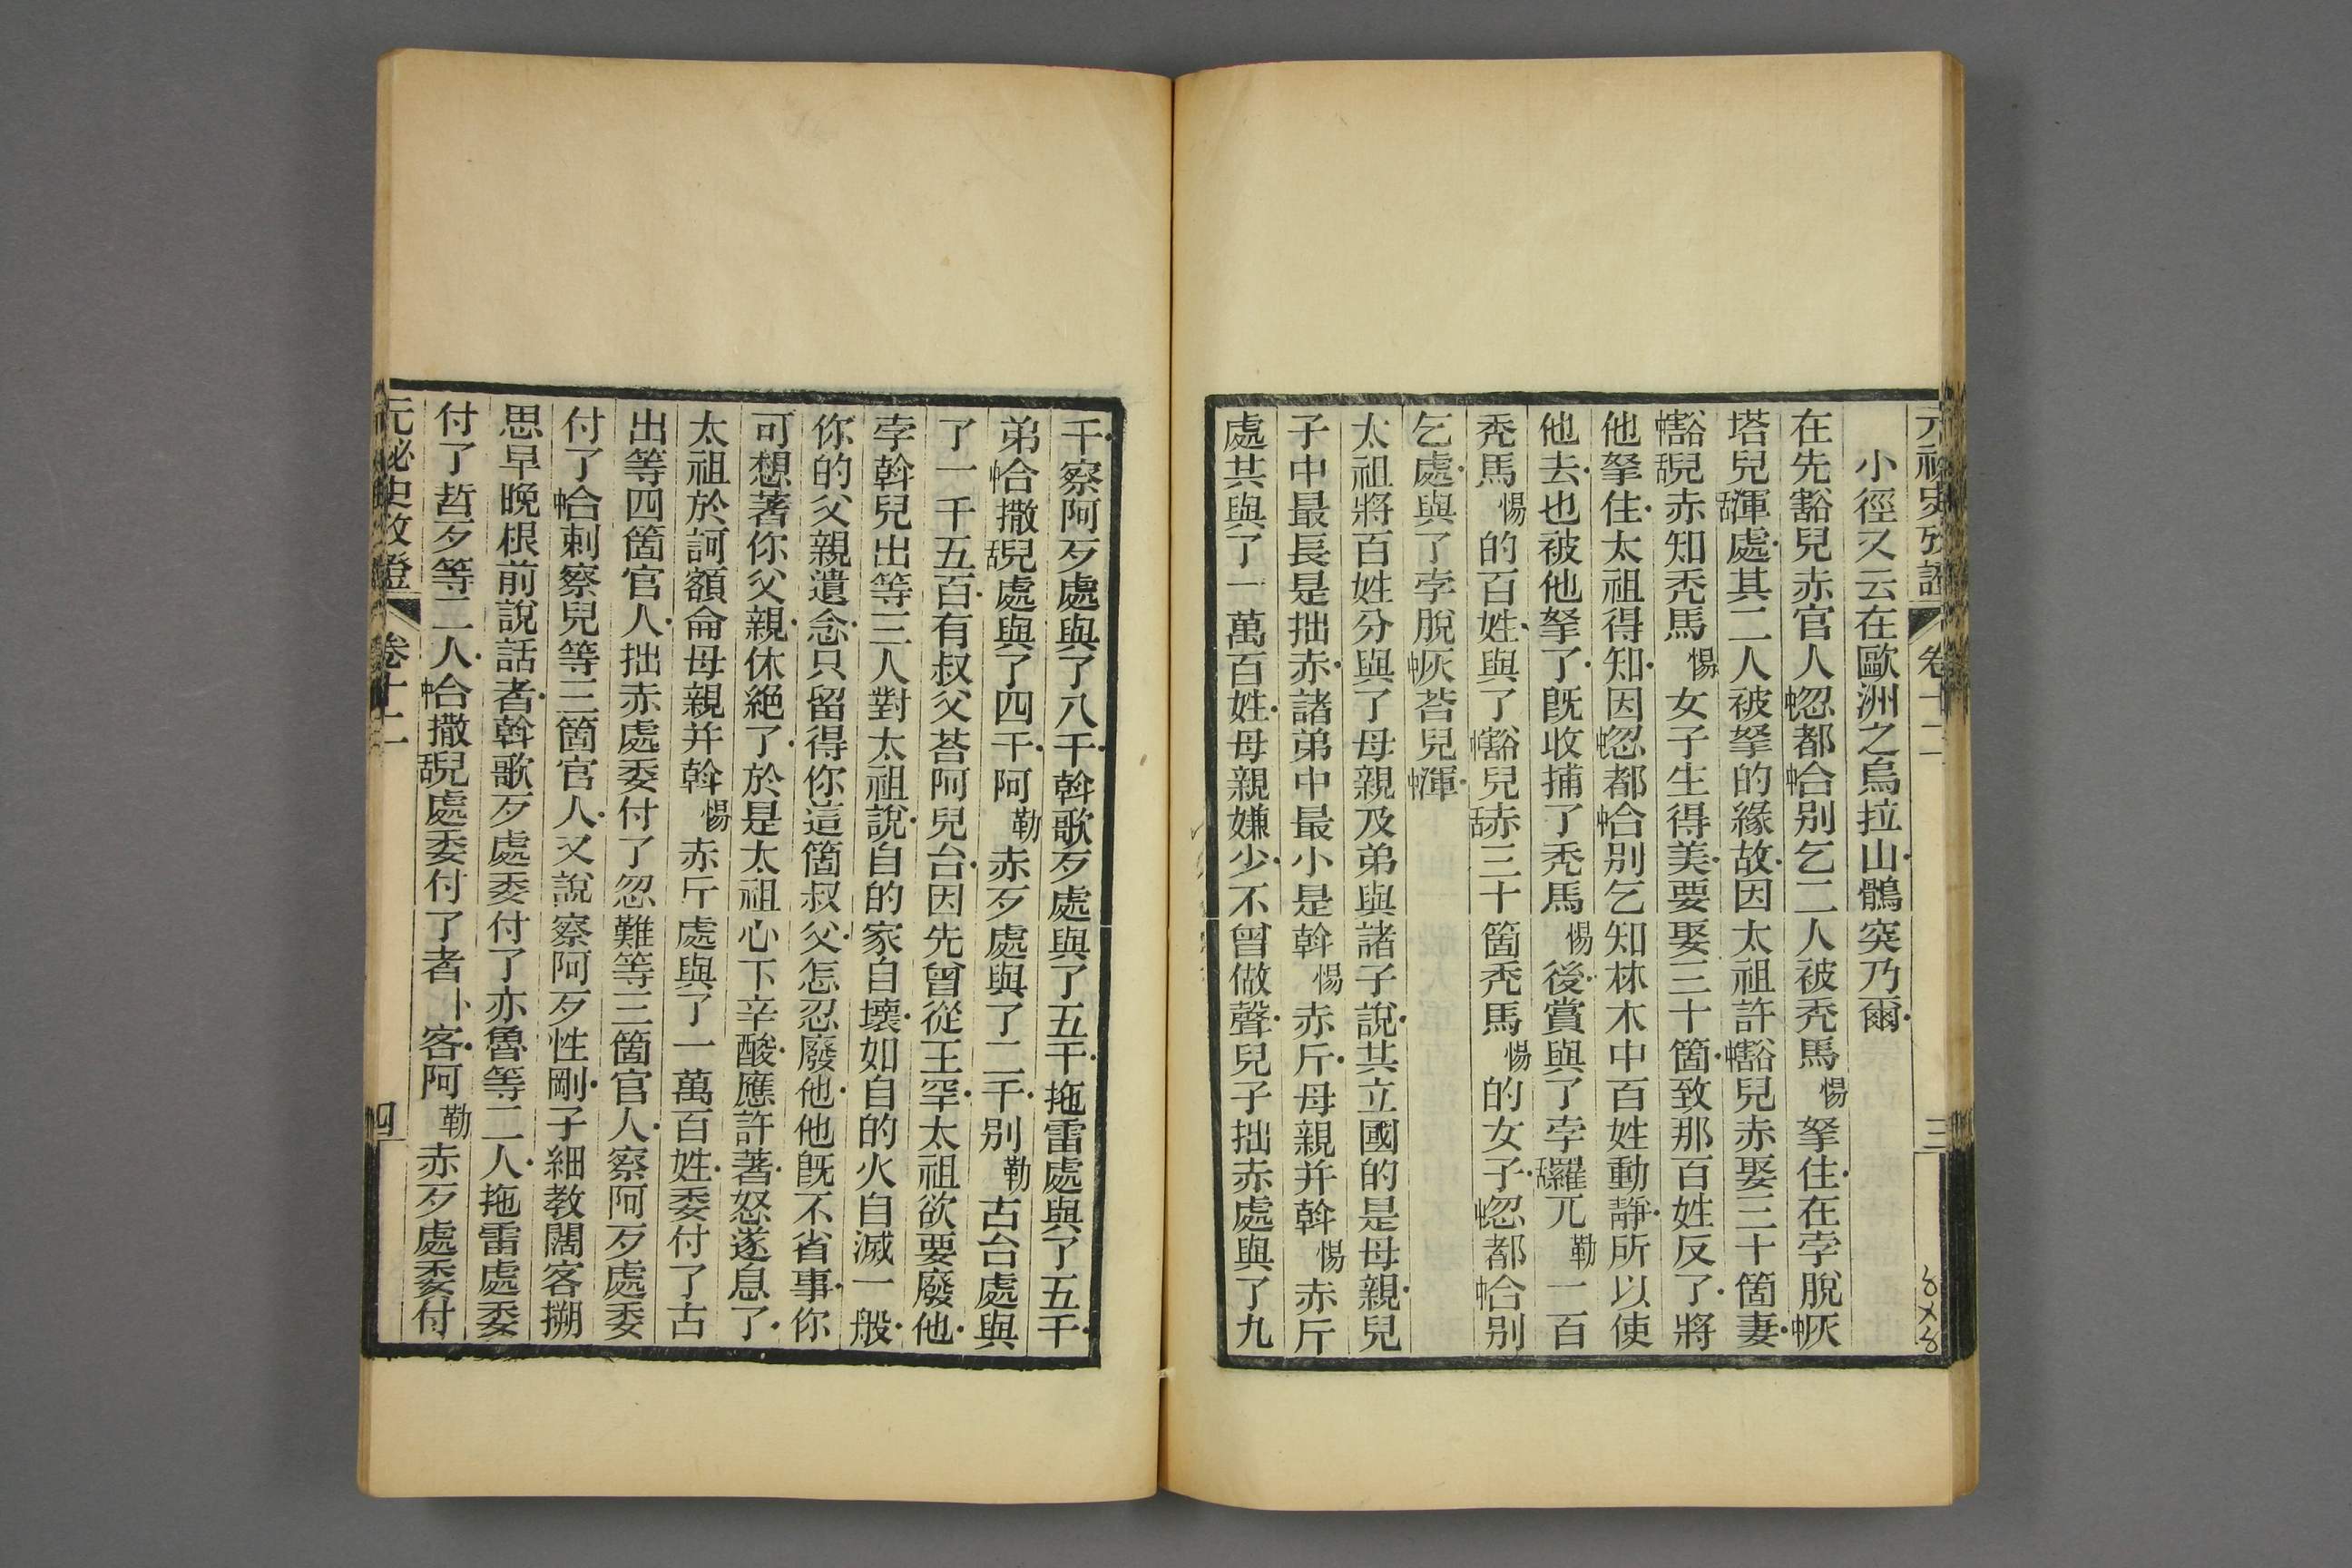 元祕史攷證 卷十二 三
小徑又云在歐洲之烏拉山鶻突乃爾
在先豁兒赤官人中忽都中合别乞二人被禿馬惕拏住在孛脫中灰
塔兒舌渾處其二人被拏的緣故因太祖許中豁兒赤娶三十箇妻
中豁舌兒赤知禿馬惕女子生得美要娶三十箇致那百姓反了將
他拏住太祖得知因中忽都中合别乞知林木中百姓動靜所以使
他去也被他拏了旣收捕了禿馬惕後賞與了孛舌羅兀勒一百
禿馬惕的百姓與了中豁兒舌赤三十箇禿馬惕的女子中忽都中合别
乞處與了孛脫中灰荅兒中渾
太祖將百姓分與了母親及弟與諸子說共立國的是母親兒
子中最長是拙赤諸弟中最小是斡惕赤斤母親并斡惕赤斤
處共與了一萬百姓母親嫌少不曾做聲兒子拙赤處與了九
千察阿歹處與了八千斡歌歹處與了五千拖雷處與了五千
弟中合撒舌兒處與了四千阿勒赤歹處與了二千别勒古台處與
了一千五百有叔父荅阿兒台因先曾從王罕太祖欲要廢他
孛斡兒出等三人對太祖說自的家自壞如自的火自滅一般
你的父親遺念只留得你這箇叔父怎忍廢他他旣不省事你
可想著你父親休絶了於是太祖心下辛酸應許著怒遂息了
太祖於訶額侖母親并斡惕赤斤處與了一萬百姓委付了古
出等四箇官人拙赤處委付了忽難等三箇官人察阿歹處委
付了中合剌察兒等三箇官人又說察阿歹性剛子細教闊客搠
思早晚根前說話者斡歌歹處委付了亦魯等二人拖雷處委
付了哲歹等二人中合撒舌兒處委付了者卜客阿勒赤歹處委付
元祕史攷證 卷十二 四